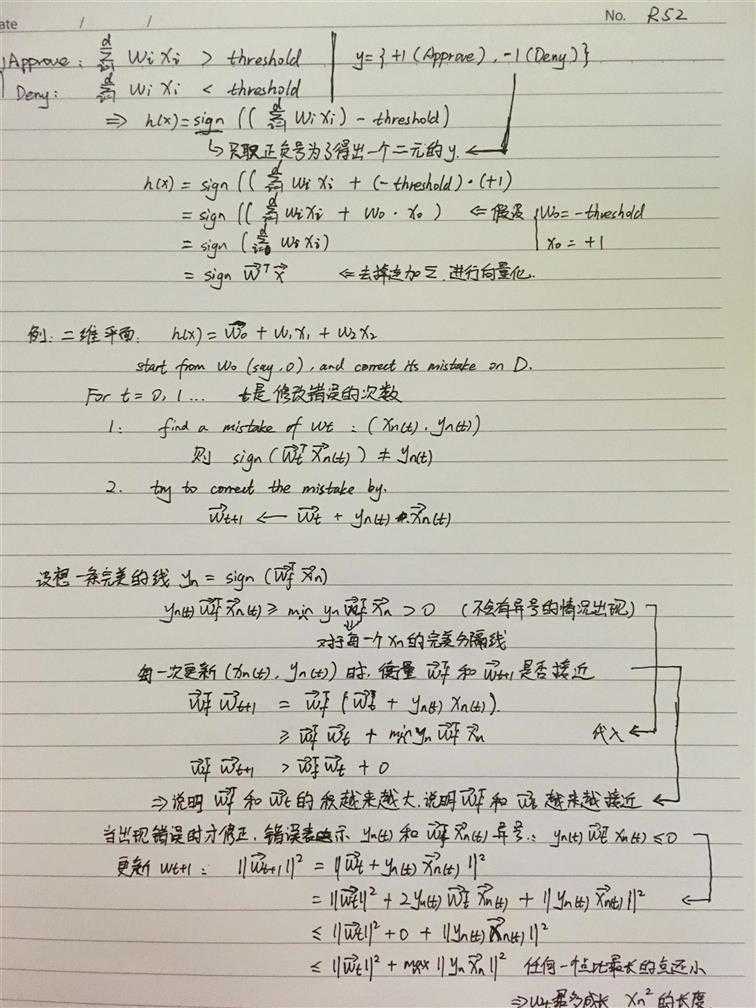 ate / / No. R52
Approve: Σ_{i=1}^{d} wi xi > threshold | y = { +1 (Approve), -1 (Deny) }
Deny: Σ_{i=1}^{d} wi xi < threshold
⇒ h(x) = sign (( Σ_{i=1}^{d} wi xi ) - threshold)
↳ 只取正负号为了得出一个二元的y. ←
h(x) = sign (( Σ_{i=1}^{d} wi xi + (-threshold)·(+1)
= sign (( Σ_{i=1}^{d} wi xi + w0 · x0 ) ⇐ 假设 { w0 = -threshold
= sign ( Σ_{i=0}^{d} wi xi ) x0 = +1
= sign W^T x ⇐ 去掉连加Σ, 进行向量化.
例: 二维平面. h(x) = w0 + w1 x1 + w2 x2
start from w0 (say, 0), and correct its mistake on D.
For t = 0, 1 ... t是修改错误的次数
1: find a mistake of wt : (xn(t), yn(t))
则 sign (wt^T xn(t)) ≠ yn(t)
2. try to correct the mistake by.
wt+1 ← wt + yn(t) · xn(t)
设想一条完美的线 yn = sign (wf^T xn)
yn(t) wf^T xn(t) ≥ min yn wf^T xn > 0 (不会有异号的情况出现)
对于每一个xn的完美分隔线
每一次更新 (xn(t), yn(t)) 时, 衡量 wf^T 和 wt+1 是否接近
wf^T wt+1 = wf^T (wt + yn(t) xn(t)).
≥ wf^T wt + min yn wf^T xn 代入 ←
wf^T wt+1 > wf^T wt + 0
⇒ 说明 wf^T 和 wt 的积越来越大, 说明 wf^T 和 wt 越来越接近 ←
当出现错误时才修正, 错误表示 yn(t) 和 wt^T xn(t) 异号: yn(t) wt^T xn(t) ≤ 0
更新 wt+1: ||wt+1||² = ||wt + yn(t) xn(t)||²
= ||wt||² + 2yn(t) wt^T xn(t) + ||yn(t) xn(t)||² ←
≤ ||wt||² + 0 + ||yn(t) xn(t)||²
≤ ||wt||² + max ||yn xn||² 任何一个点比最长的点还小
⇒ wt 最多成长 xn² 的长度